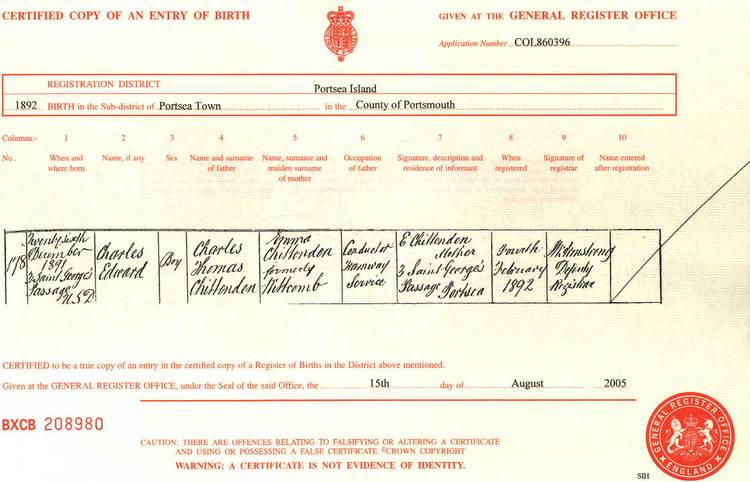 CERTIFIED COPY OF AN ENTRY OF BIRTH
GIVEN AT THE GENERAL REGISTER OFFICE
Application Number COL860396
REGISTRATION DISTRICT Portsea Island
1892 BIRTH in the Sub-district of Portsea Town in the County of Portsmouth
Columns:- 1 2 3 4 5 6 7 8 9 10
No. When and where born Name, if any Sex Name and surname of father Name, surname and maiden surname of mother Occupation of father Signature, description and residence of informant When registered Signature of registrar Name entered after registration
178
Twenty sixth
December
1891
3 Saint George's
Passage
U.S.D.
Charles
Edward
Boy
Charles
Thomas
Chittenden
Emma
Chittenden
formerly
Wittcomb
Conductor
Tramway
Service
E Chittenden
Mother
3 Saint George's
Passage Portsea
Fourth
February
1892
Armstrong
Deputy
Registrar
CERTIFIED to be a true copy of an entry in the certified copy of a Register of Births in the District above mentioned.
Given at the GENERAL REGISTER OFFICE, under the Seal of the said Office, the 15th day of August 2005
BXCB 208980
CAUTION: THERE ARE OFFENCES RELATING TO FALSIFYING OR ALTERING A CERTIFICATE
AND USING OR POSSESSING A FALSE CERTIFICATE ©CROWN COPYRIGHT
WARNING: A CERTIFICATE IS NOT EVIDENCE OF IDENTITY.
GENERAL REGISTER OFFICE
ENGLAND
SIH